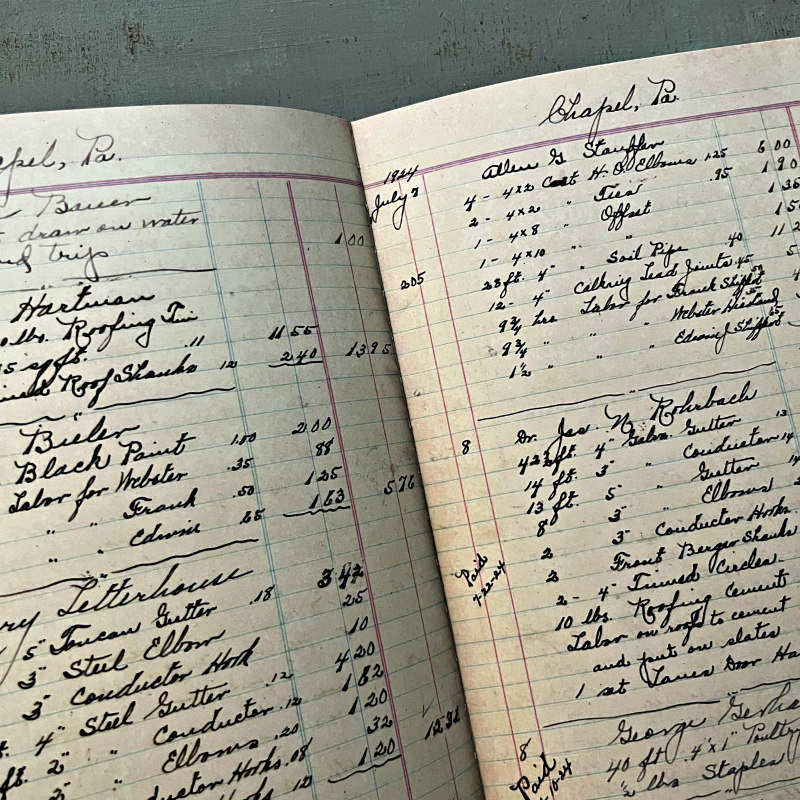 Pa.
Bauer
draw on water
trip
1 00
Hartman
lbs. Roofing Tin 11 55
sq ft. .11 2 40 13 95
Roof Shanks 12
Bieler
Black Paint 1.00 2 00
Labor for Webster .35 88
" " Frank .50 1 25
" " Edwin .65 1 63 5 76
Letterhouse
5" Toncan Gutter .18 3 42
3" Steel Elbow 25
3" Conductor Hook 10
4" Steel Gutter .12 4 20
ft. 2" " Conductor .12 1 82
2" Elbows .20 1 20
Conductor Hooks .08 32
12 1 20
12 31
Chapel, Pa.
1924 Allen G. Stauffer
July 7 4 - 4x2 Cast H. O. Elbows 1.25 6 00
2 - 4x2 " Ties .95 1 90
1 - 4x8 " Offset 1 35
1 - 4x10 " "
205 28 ft. 4" " Soil Pipe 40 11 2
12 - 4" Calking Lead Joints .45
9 3/4 hrs Labor for Frank
9 3/4 " " " Webster
1 1/2 " " " Edwin
8 Dr. Jas. N. Rohrbach
ft. 4" Galv. Gutter 13
14 ft. 3" " Conductor 14
13 ft. 5" " Gutter
8 3" " Elbows
2 3" Conductor Hooks
Paid 7-22-24
2 Front Berger Shanks
2 - 4" Tinned Circles
10 lbs. Roofing Cement
Labor on roof to cement
and put on slates
1 set Door
8 George
Paid
10-24
40 ft 4'x1" Poultry
2 lbs Staples